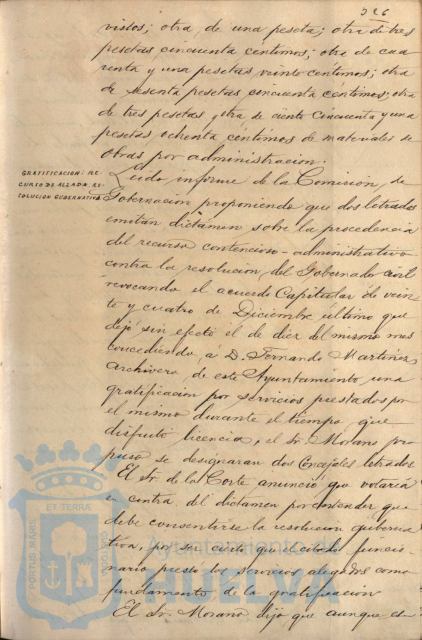 326
vistos; otra de una peseta; otra de tres
pesetas cincuenta centimos; otra de cua
renta y una pesetas veinte centimos; otra
de sesenta pesetas cincuenta centimos; otra
de tres pesetas y otra de ciento cincuenta y una
pesetas ochenta céntimos de materiales de
obras por administracion.
GRATIFICACION RE-
CURSO DE ALZADA RE-
SOLUCION GUBERNATIVA
Leido informe de la Comision de
Gobernacion proponiendo que dos letrados
emitan dictámen sobre la procedencia
del recurso contencioso-administrativo
contra la resolucion del Gobernador civil
revocando el acuerdo Capitular de vein
te y cuatro de Diciembre último que
dejó sin efecto el de diez del mismo mes
concediendo á D. Fernando Martinez
archivero de este Ayuntamiento una
gratificacion por servicios prestados por
el mismo durante el tiempo que
disfrutó licencia, el Sr. Morano pro
puso se designaran dos Concejales letrados
El Sr. de la Corte anunció que votaria
en contra del dictamen por entender que
debe consentirse la resolucion guberna
tiva, por ser cierto que el citado funcio
nario prestó los servicios alegados como
fundamento de la gratificacion
El Sr. Morano dijo que aunque es
PORTUS MARIS ET TERRAE CUSTODIA
Ayuntamiento de
HUELVA